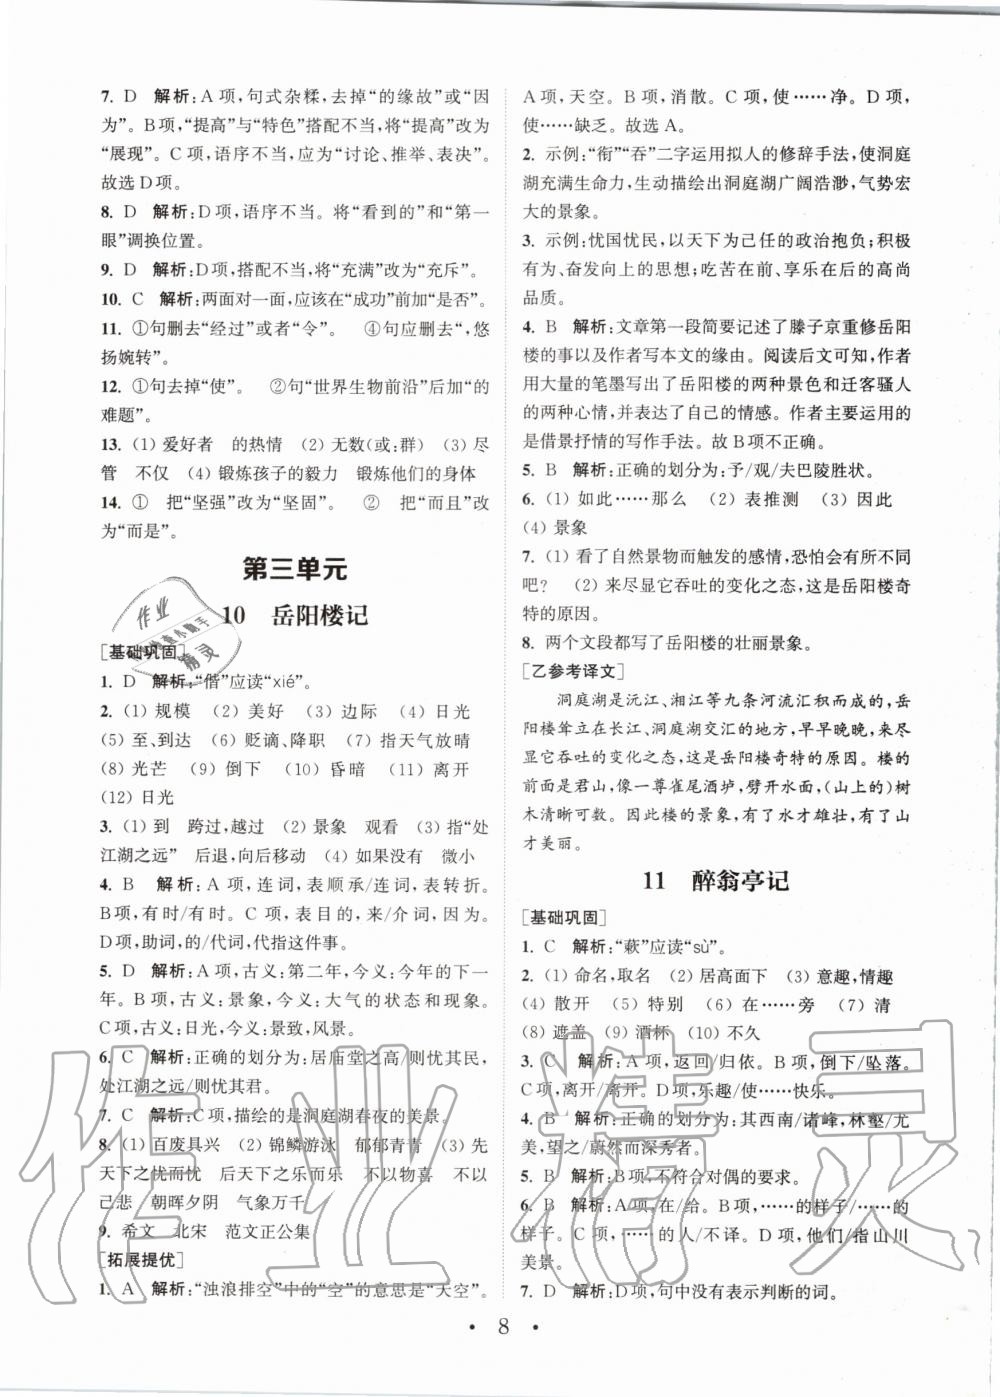 7. D 解析:A项,句式杂糅,去掉“的缘故”或“因
为”。B项,“提高”与“特色”搭配不当,将“提高”改为
“展现”。C项,语序不当,应为“讨论、推举、表决”。
故选D项。
8. D 解析:D项,语序不当。将“看到的”和“第一
眼”调换位置。
9. D 解析:D项,搭配不当,将“充满”改为“充斥”。
10. C 解析:两面对一面,应该在“成功”前加“是否”。
11. ①句删去“经过”或者“令”。 ④句应删去“,悠
扬婉转”。
12. ①句去掉“使”。 ②句“世界生物前沿”后加“的
难题”。
13. (1) 爱好者 的热情 (2) 无数(或:群) (3) 尽
管 不仅 (4) 锻炼孩子的毅力 锻炼他们的身体
14. ① 把“坚强”改为“坚固”。 ② 把“而且”改
为“而是”。
第三单元
10 岳阳楼记
[基础巩固]
1. D 解析:“偕”应读“xié”。
2. (1) 规模 (2) 美好 (3) 边际 (4) 日光
(5) 至、到达 (6) 贬谪、降职 (7) 指天气放晴
(8) 光芒 (9) 倒下 (10) 昏暗 (11) 离开
(12) 日光
3. (1) 到 跨过,越过 (2) 景象 观看 (3) 指“处
江湖之远” 后退,向后移动 (4) 如果没有 微小
4. B 解析:A项,连词,表并列/连词,表修饰。
B项,有时/有时。C项,表目的,来/介词,因为。
D项,助词,的/代词,代指这件事。
5. D 解析:A项,古义:第二年,今义:今年的下一
年。B项,古义:景象,今义:大气的状态和现象。
C项,古义:日光,今义:景致,风景。
6. C 解析:正确的划分为:居庙堂之高/则忧其民,
处江湖之远/则忧其君。
7. C 解析:C项,描绘的是洞庭湖春夜的美景。
8. (1) 百废具兴 (2) 锦鳞游泳 郁郁青青 (3) 先
天下之忧而忧 后天下之乐而乐 不以物喜 不以
己悲 朝晖夕阴 气象万千
9. 希文 北宋 范文正公集
[拓展提优]
1. A 解析:“浊浪排空”中的“空”的意思是“天空”。
A项,天空。B项,消散。C项,使……净。D项,
使……缺乏。故选A。
2. 示例:“衔”“吞”二字运用拟人的修辞手法,使洞庭
湖充满生命力,生动描绘出洞庭湖广阔浩渺,气势宏
大的景象。
3. 示例:忧国忧民,以天下为己任的政治抱负;积极
有为、奋发向上的思想;吃苦在前、享乐在后的高尚
品质。
4. B 解析:文章第一段简要记述了滕子京重修岳阳
楼的事以及作者写本文的缘由。阅读后文可知,作者
用大量的笔墨写出了岳阳楼的两种景色和迁客骚人
的两种心情,并表达了自己的情感。作者主要运用的
是借景抒情的写作手法。故B项不正确。
5. B 解析:正确的划分为:予/观/夫巴陵胜状。
6. (1) 如此……那么 (2) 表推测 (3) 因此
(4) 景象
7. (1) 看了自然景物而触发的感情,恐怕会有所不同
吧? (2) 来尽显它吞吐的变化之态,这是岳阳楼奇
特的原因。
8. 两个文段都写了岳阳楼的壮丽景象。
[乙参考译文]
洞庭湖是沅江、湘江等九条河流汇积而成的,岳
阳楼耸立在长江、洞庭湖交汇的地方,早早晚晚,来尽
显它吞吐的变化之态,这是岳阳楼奇特的原因。楼的
前面是君山,像一尊雀尾酒垆,劈开水面,(山上的)树
木清晰可数。因此楼的景象,有了水才雄壮,有了山
才美丽。
11 醉翁亭记
[基础巩固]
1. C 解析:“蔌”应读“sù”。
2. (1) 命名,取名 (2) 居高面下 (3) 意趣,情趣
(4) 散开 (5) 特别 (6) 在……旁 (7) 清
(8) 遮盖 (9) 酒杯 (10) 不久
3. C 解析:A项,返回/归依。B项,倒下/坠落。
C项,离开/离开。D项,乐趣/使……快乐。
4. B 解析:正确的划分为:其西南/诸峰,林壑/尤
美,望之/蔚然而深秀者。
5. B 解析:B项,不符合对偶的要求。
6. B 解析:A项,在/给。B项,……的样子/……的
样子。C项,……的人/不译。D项,他们/指山川
美景。
7. D 解析:D项,句中没有表示判断的词。
• 8 •
作业
精灵
作业精灵